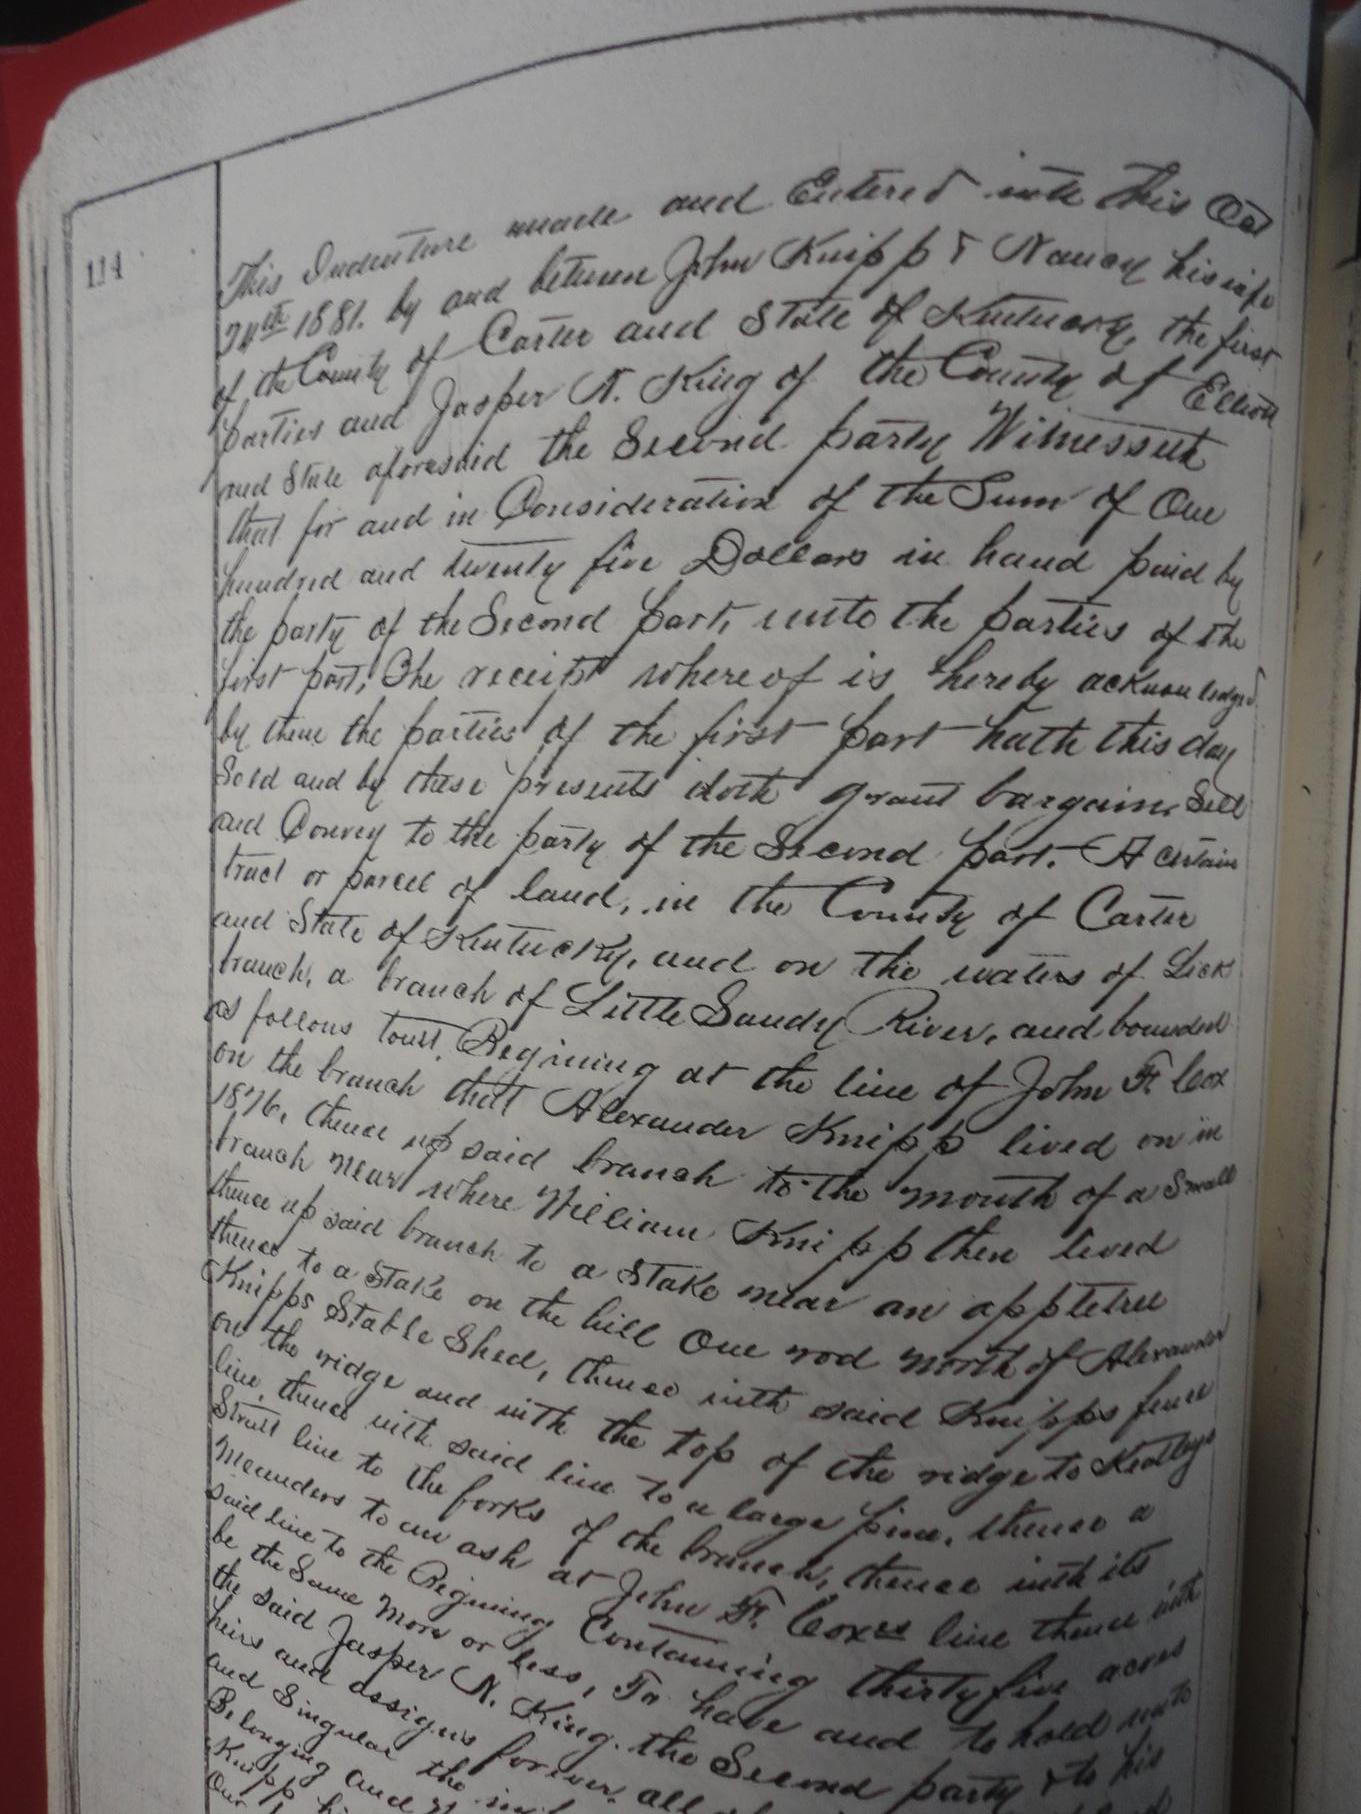 114
This Indenture made and Entered into this Oct
24th 1881. by and between John Knipp & Nancy his wife
of the County of Carter and State of Kentucky, the first
parties and Jasper N. King of the County of Elliott
and State aforesaid the Second party Witnesseth
that for and in Consideration of the Sum of One
hundred and twenty five Dollars in hand paid by
the party of the Second part, unto the parties of the
first part, The receipt whereof is hereby acknowledged
by them the parties of the first part hath this day
Sold and by these presents doth grant bargain, Sell
and Convey to the party of the Second part. A certain
tract or parcel of land, in the County of Carter
and State of Kentucky, and on the waters of Lick
branch, a branch of Little Sandy River, and bounded
as follows towit, Begining at the line of John F. Cox
on the branch that Alexander Knipp lived on in
1876, thence up said branch to the mouth of a Small
branch near where William Knipp then lived
thence up said branch to a Stake near an appletree
thence to a Stake on the hill One rod North of Alexander
Knipps Stable Shed, thence with said Knipps fence
on the ridge and with the top of the ridge to
line, thence with said line to a large pine, thence a
Strait line to the forks of the branch, thence with its
Meanders to an ash at John F. Coxes line thence with
said line to the Begining Containing thirty five acres
be the Same More or less, To have and to hold unto
the said Jasper N. King. the Second party & to his
heirs and assigns forever. all
and Singular the
Belonging and
Knipp